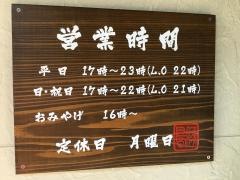 営業時間
平日 17時〜23時(L.O 22時)
日・祝日 17時〜22時(L.O 21時)
おみやげ 16時〜
定休日 月曜日